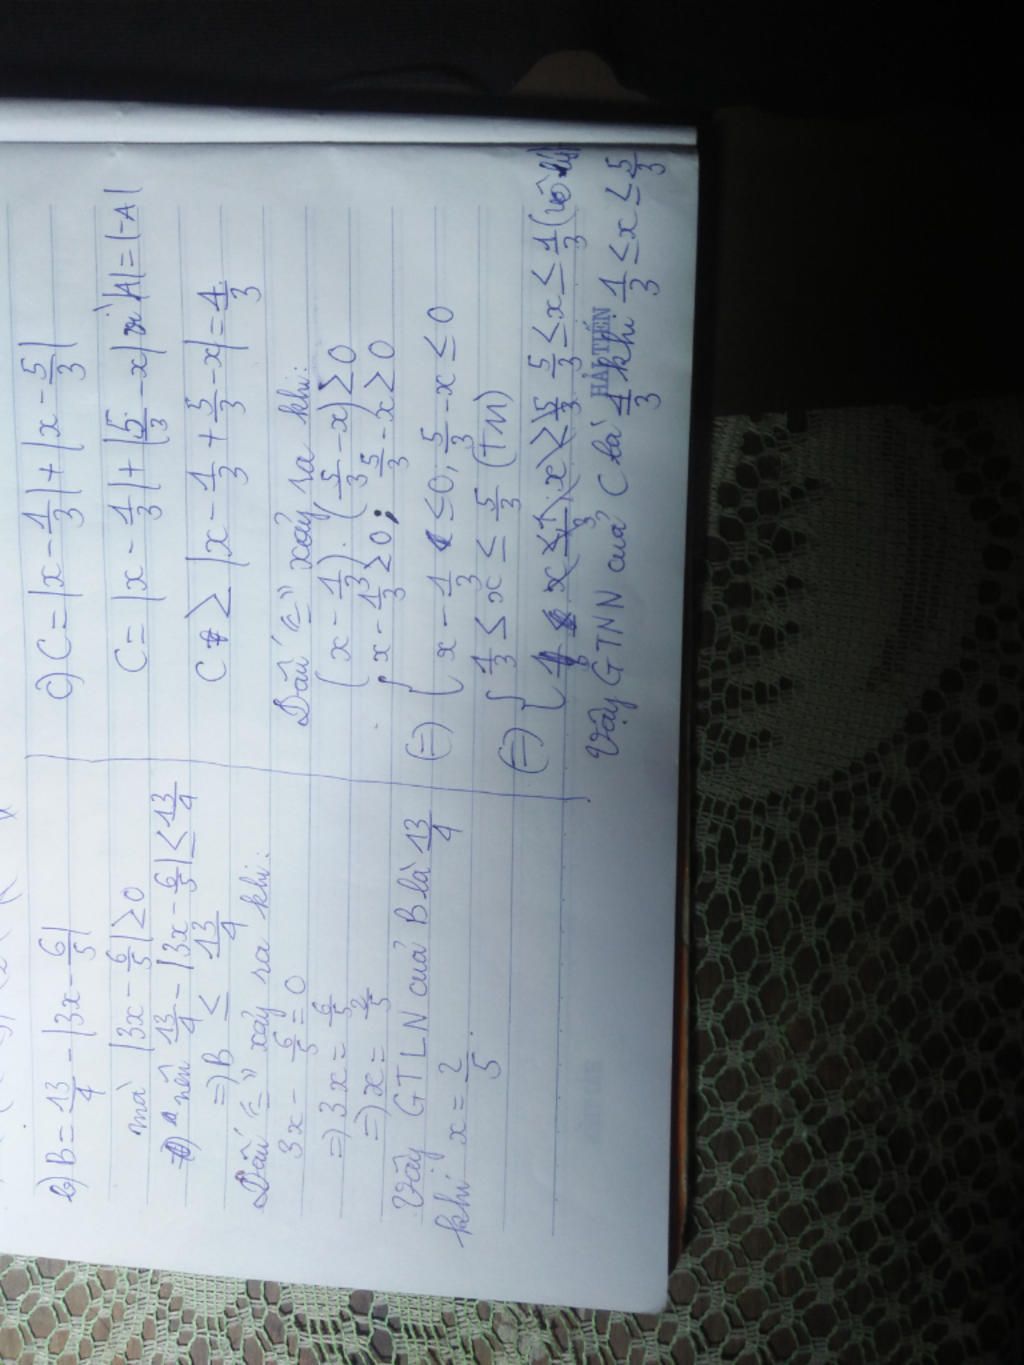 b) B = 13/4 - |3x - 6/5|
mà |3x - 6/5| ≥ 0
nên 13/4 - |3x - 6/5| ≤ 13/4
=> B ≤ 13/4
Dấu "=" xảy ra khi:
3x - 6/5 = 0
=> 3x = 6/5
=> x = 2/5
Vậy GTLN của B là 13/4
khi x = 2/5
c) C = |x - 1/3| + |x - 5/3|
C = |x - 1/3| + |5/3 - x| vì |A| = |-A|
C ≥ |x - 1/3 + 5/3 - x| = 4/3
Dấu "=" xảy ra khi:
(x - 1/3) . (5/3 - x) ≥ 0
x - 1/3 ≥ 0 ; 5/3 - x ≥ 0
(=) { x - 1/3 ≤ 0 ; 5/3 - x ≤ 0
1/3 ≤ x ≤ 5/3 (TM)
(=) { 5/3 ≤ x ≤ 1/3 (vô lý)
HẢI TIẾN
Vậy GTNN của C là 4/3 khi 1/3 ≤ x ≤ 5/3